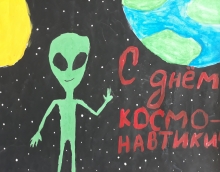 С днём
КОСМО-
НАВТИКИ